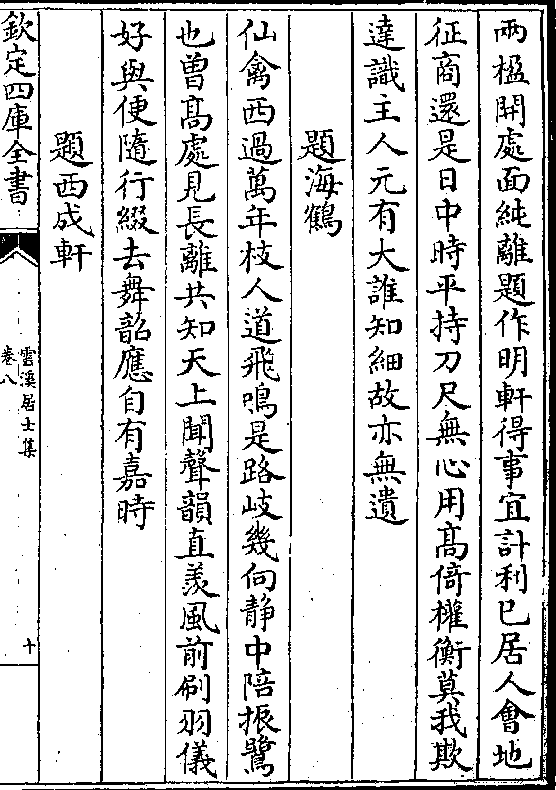 兩楹開處面純離題作明軒得事宜計利已居人會地
征商還是日中時平持刀尺無心用髙倚權衡莫我欺
達識主人元有大誰知細故亦無遺
題海鶴
仙禽西過萬年枝人道飛鳴是路岐幾向静中陪振鷺
也曽髙處見長離共知天上聞聲韻直羡風前刷羽儀
好與便隨行綴去舞韶應自有嘉時
題西成軒
欽定四庫全書
雲溪居士集
卷八
十